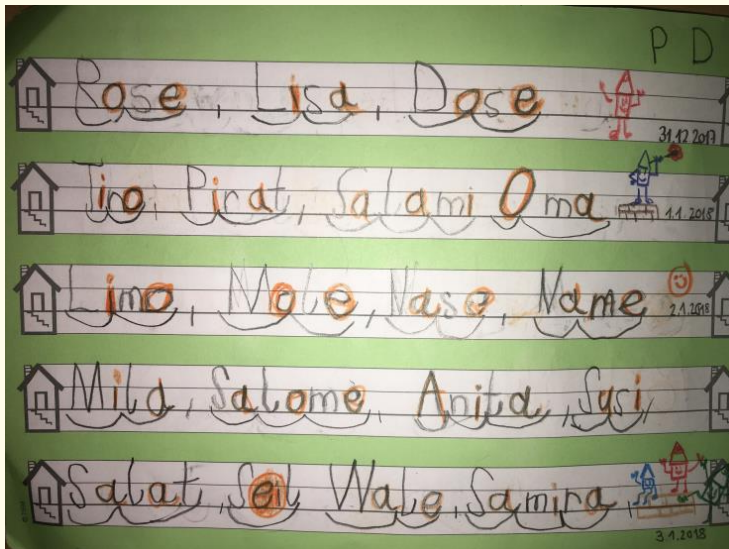 P D
Rose, Lisa, Dose
31.12.2017
Tino, Pirat, Salami Oma
1.1.2018
Limo, Mole, Nase, Name
2.1.2018
Mila, Salome, Anita, Susi,
Salat, Seil Wale, Samira,
3.1.2018